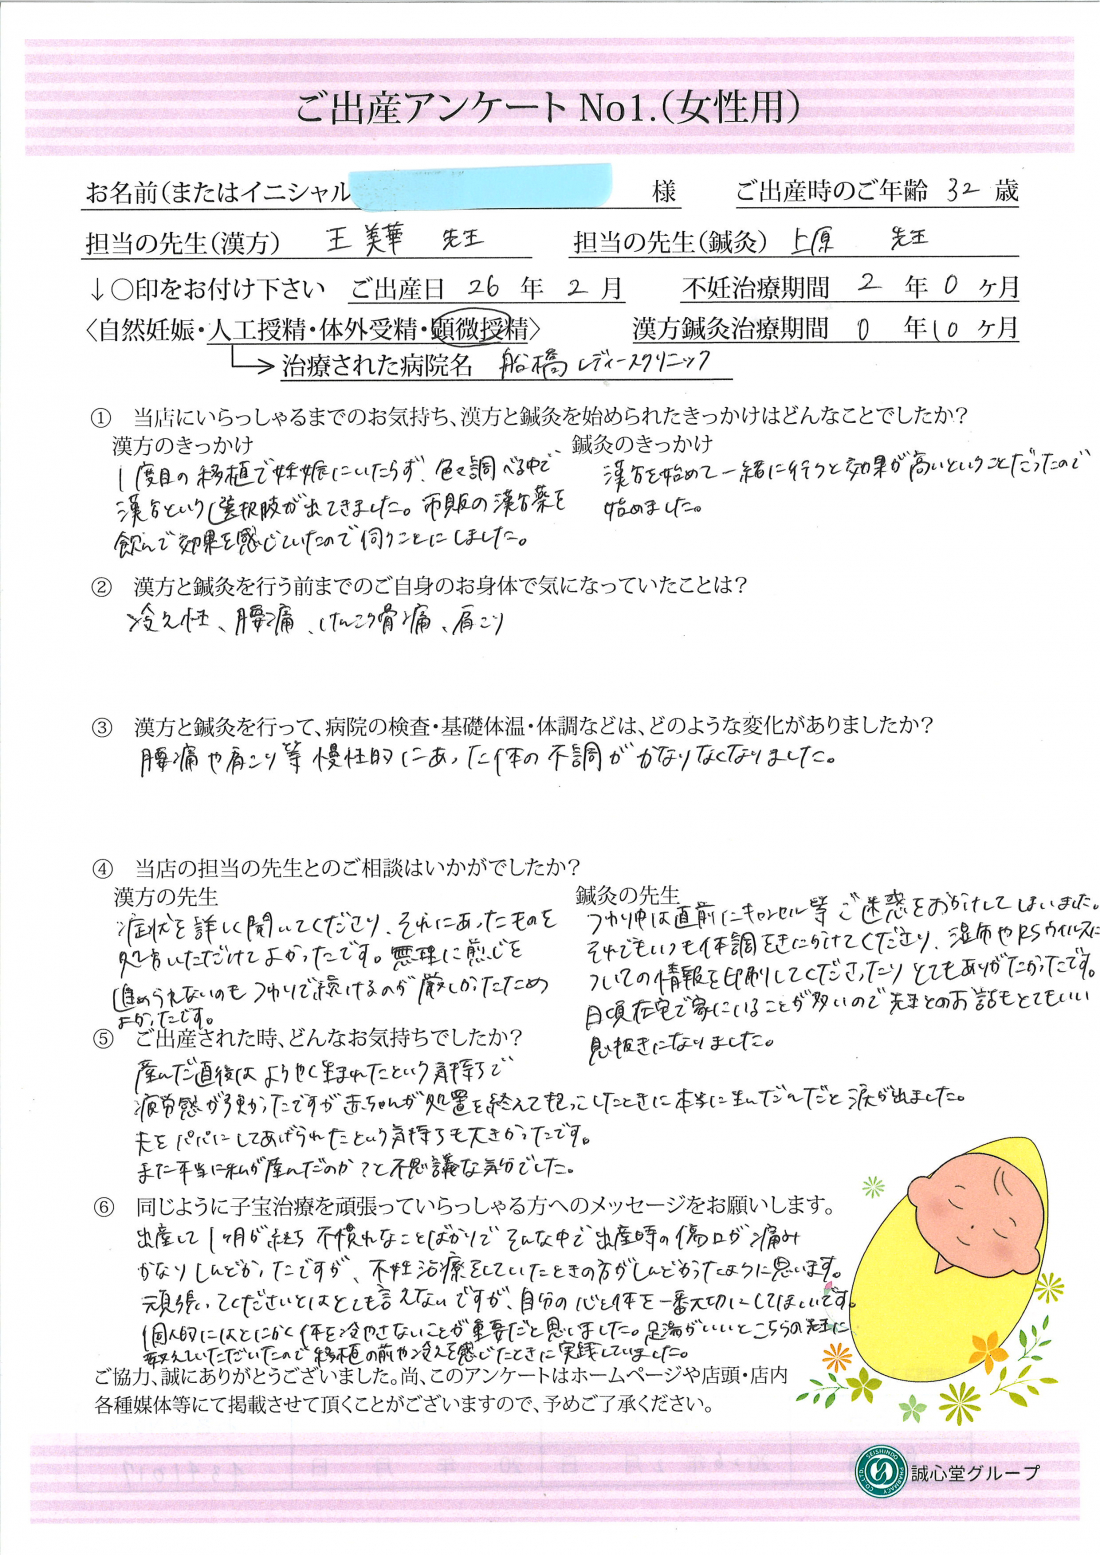 ご出産アンケート No1.（女性用）
お名前（またはイニシャル 様 ご出産時のご年齢 32 歳
担当の先生（漢方） 王 美華 先生 担当の先生（鍼灸） 上原 先生
↓○印をお付け下さい ご出産日 26 年 2 月 不妊治療期間 2 年 0 ヶ月
〈自然妊娠・人工授精・体外受精・顕微授精〉 漢方鍼灸治療期間 0 年 10 ヶ月
治療された病院名 船橋レディースクリニック
① 当店にいらっしゃるまでのお気持ち、漢方と鍼灸を始められたきっかけはどんなことでしたか？
漢方のきっかけ
1度目の移植で妊娠にいたらず、色々調べる中で
漢方という選択肢が出てきました。市販の漢方薬を
飲んで効果を感じていたので伺うことにしました。
鍼灸のきっかけ
漢方を始めて一緒に行うと効果が高いということだったので
始めました。
② 漢方と鍼灸を行う前までのご自身のお身体で気になっていたことは？
冷え性、腰痛、けんこう骨痛、肩こり
③ 漢方と鍼灸を行って、病院の検査・基礎体温・体調などは、どのような変化がありましたか？
腰痛や肩こり等慢性的にあった体の不調がかなりなくなりました。
④ 当店の担当の先生とのご相談はいかがでしたか？
漢方の先生
症状を詳しく聞いてくださり、それにあったものを
処方いただけてよかったです。無理に煎じを
進められないのもつわりで続けるのが厳しかったため
よかったです。
鍼灸の先生
つわり中は直前にキャンセル等ご迷惑をおかけしてしまいました。
それでもいつも体調をきにかけてくださり、湿布やRSウイルスに
ついての情報を印刷してくださったりとてもありがたかったです。
日頃在宅で家にいることが多いので先生とのお話もとてもいい
息抜きになりました。
⑤ ご出産された時、どんなお気持ちでしたか？
産んだ直後はようやく生まれたという気持ちで
疲労感が強かったですが赤ちゃんが処置を終えて抱っこしたときに本当に生んだんだと涙が出ました。
夫をパパにしてあげられたという気持ちも大きかったです。
また本当に私が産んだのか？と不思議な気分でした。
⑥ 同じように子宝治療を頑張っていらっしゃる方へのメッセージをお願いします。
出産して1ヶ月が経ち不慣れなことばかりでそんな中で出産時の傷口が痛み
かなりしんどかったですが、不妊治療をしていたときの方がしんどかったように思います。
頑張ってくださいとはとても言えないですが、自分の心と体を一番大切にしてほしいです。
個人的にはとにかく体を冷やさないことが重要だと思いました。足湯がいいとこちらの先生に
教えていただいたので移植の前や冷えを感じたときに実践していました。
ご協力、誠にありがとうございました。尚、このアンケートはホームページや店頭・店内
各種媒体等にて掲載させて頂くことがございますので、予めご了承ください。
誠心堂グループ